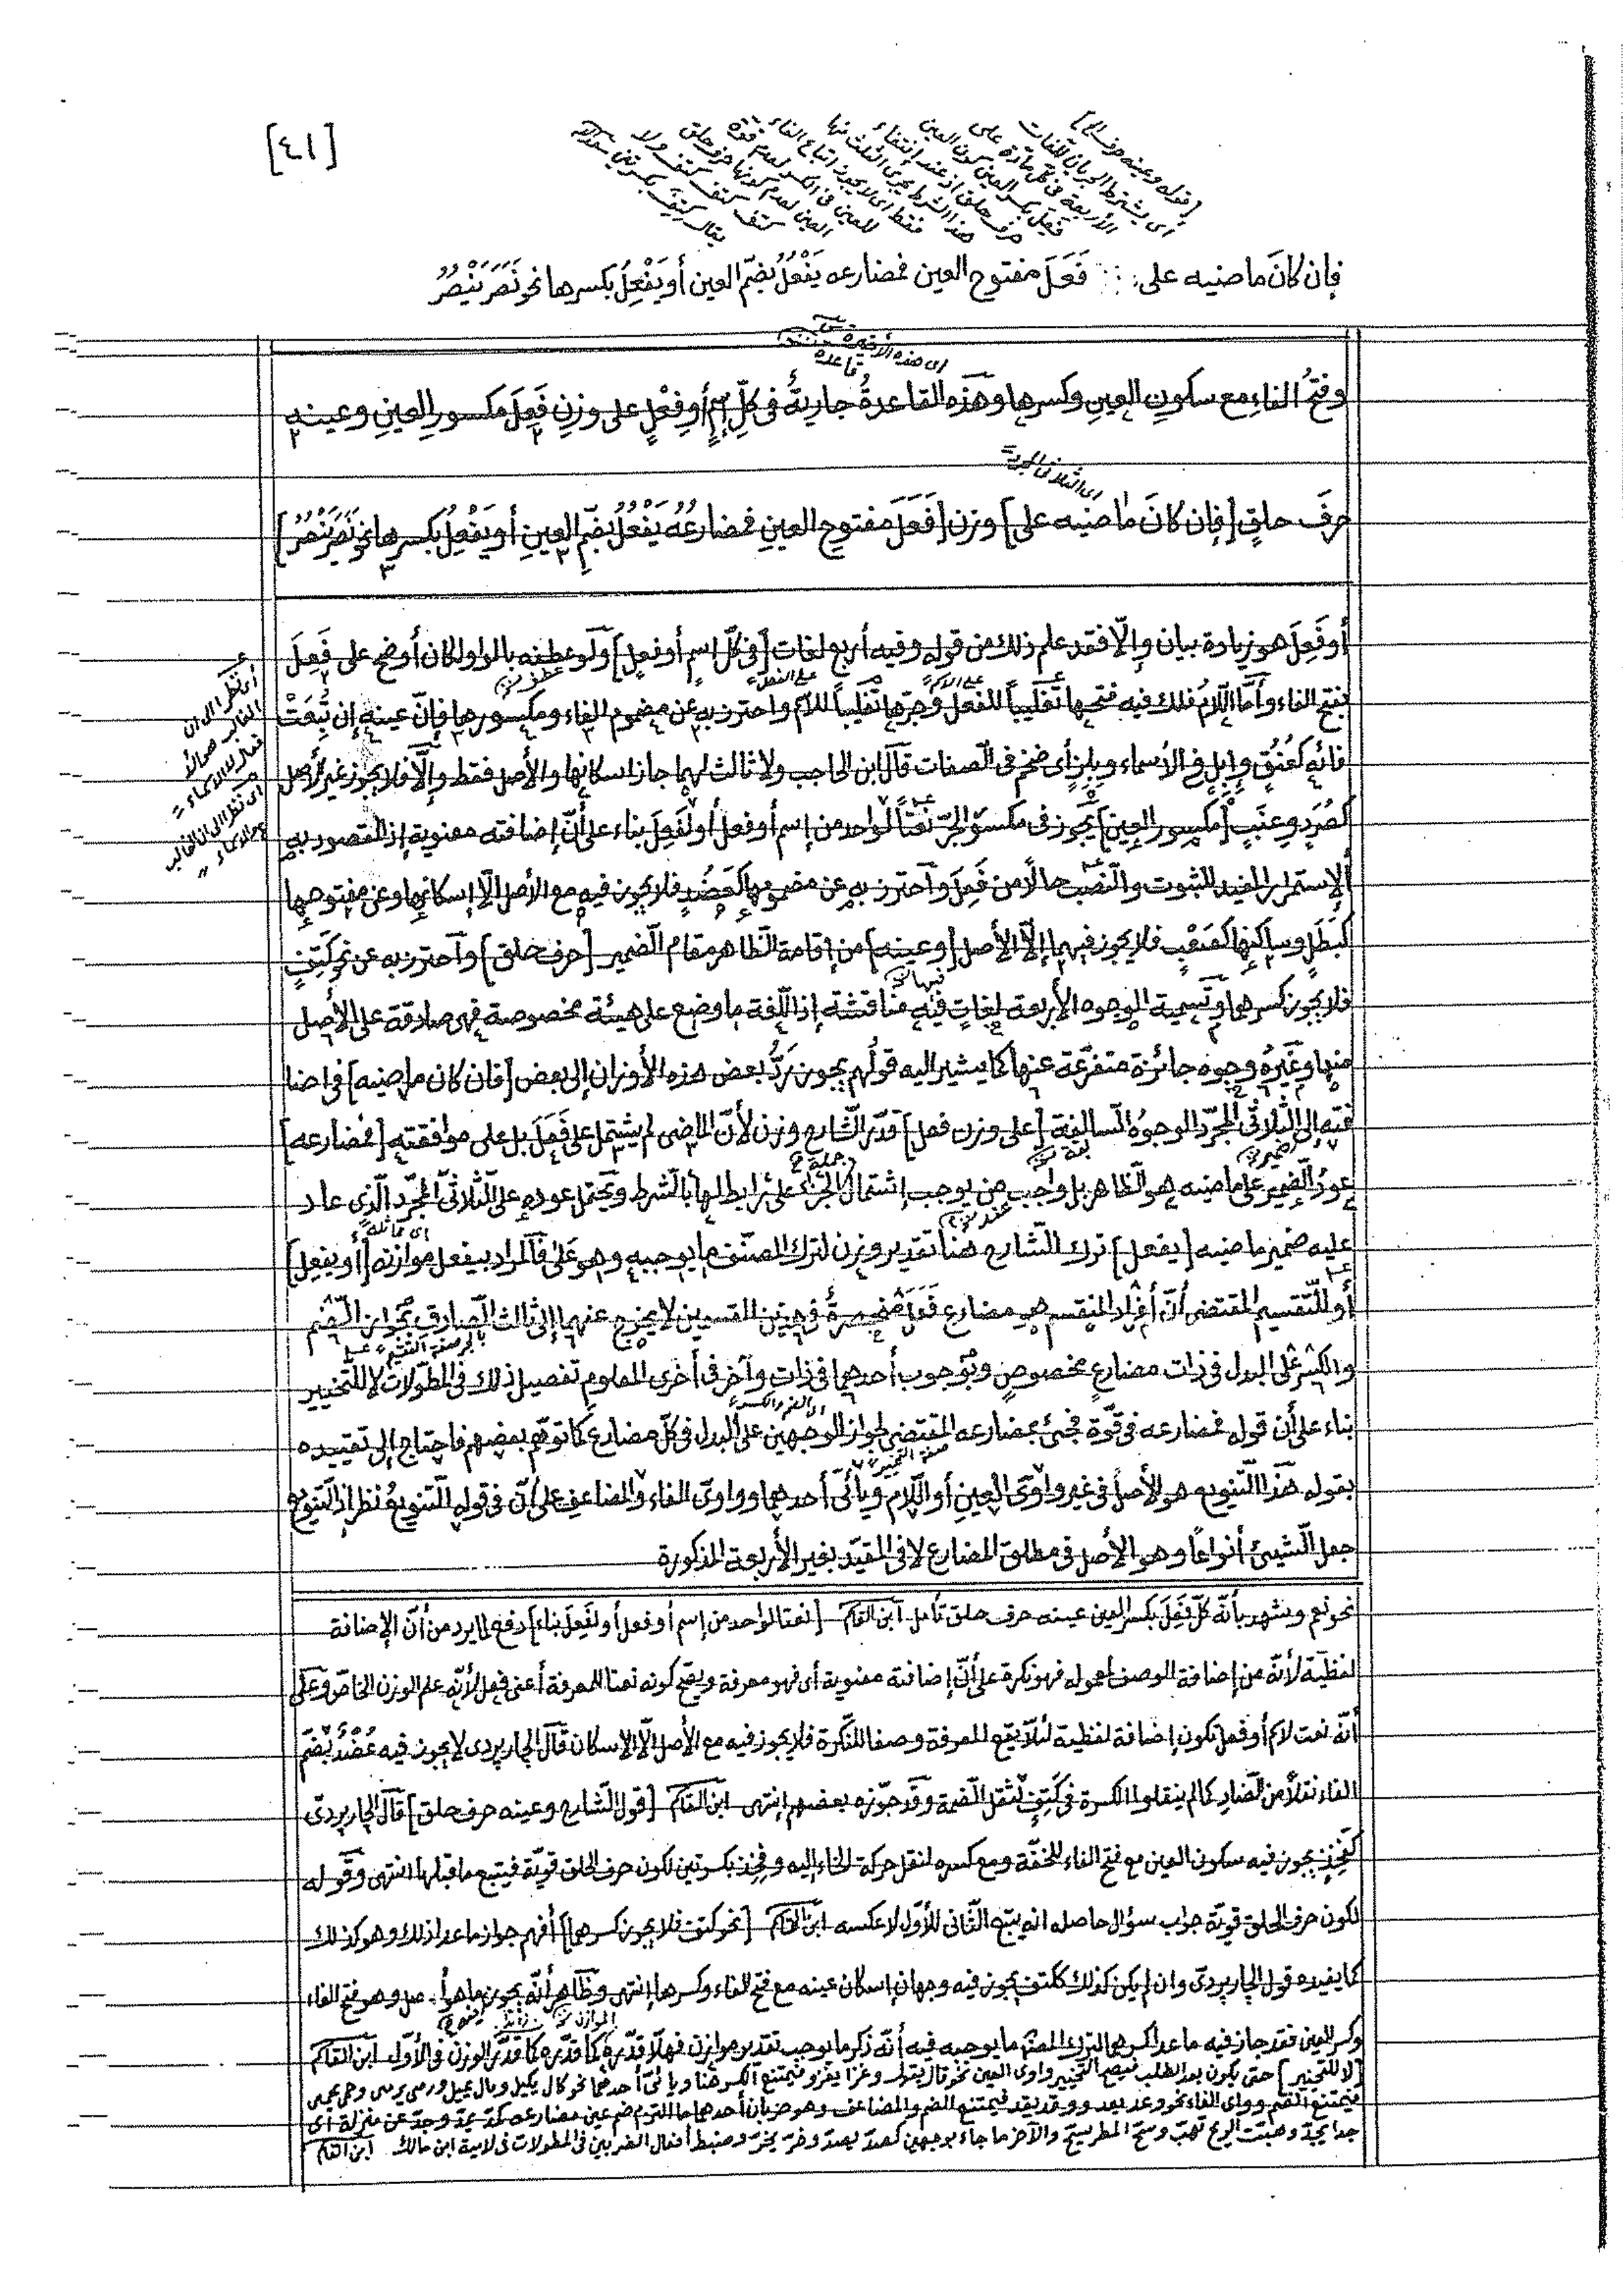 [٤١]
[قوله وعينه حرف الخ]
أى يشترط الجريان اللغات
الأربعة فى كل مادة على
فعل بكسر العين سكون العين
حرف حلق إذ عند إنتفاء
هذا الشرط يجرى الثلث منها
فقط أى لا يجوز اتباع الفاء
للعين فى الكسر لعدم قوة
العين لعدم كونها حرف حلق
كتف كتف كتف ولا
يقال كتف بكسرتين
فإن كانَ ماضيه على فَعَلَ مفتوح العين فمضارعه يَفْعُلُ بضمّ العين أو يَفْعِلُ بكسرها نحو نَصَرَ يَنْصُرُ
اى هذه الأخيرة قاعدة
وفتحُ الفاءِ مع سكونِ العينِ وكسرها وهذه القاعدةُ جاريةٌ فى كلِّ إسمٍ أو فِعْلٍ على وزنِ فَعِلَ مكسورِ العينِ وعينه
اى الثلاثى المجرد
حرفَ حلقٍ [فإن كانَ ماضيه على] وزن [فَعَلَ مفتوح العينِ فمضارعُه يَفْعُلُ بضمّ العينِ أو يَفْعِلُ بكسرها نحو نَصَرَ يَنْصُرُ]
أو فَعِلَ هو زيادة بيان وإلّا فقد علم ذلك من قوله وفيه أربع لغات [فى كلّ اسم أو فعل] ولو عطفه بالواو لكان أوضح على فَعِلَ
بفتح الفاء وأمّا اللّامُ فلك فيه فتحها تغليباً للفعل وجرّها تغليباً للاسم واحترز به عن مضموم الفاء ومكسورها فإنّ عينه إن تَبِعَتْ
فائه كعُنُقٍ وإبِلٍ فى الأسماء وبِلِزٍ أى ضخم فى الصفات قال ابن الحاجب ولا ثالث لهما جاز إسكانها والأصل فقط وإلّا فلا يجوز غير الأصل
كصُرَدٍ وعِنَبٍ [مكسور العين] يجوز فى مكسور الجرّ نعتاً لواحد من إسم أو فعل أو لفَعِلَ بناء على أنّ إضافته معنوية إذ المقصود به
الإستمرار المفيد للثبوت والنّصب حالاً من فَعِلَ واحترز به عن مضمومها كعَضُدٍ فلا يجوز فيه مع الأصل إلّا إسكانها وعن مفتوحها
كبَطَلٍ وساكنها كصَعْبٍ فلا يجوز فيهما إلّا الأصل [وعينه] من إقامة الظاهر مقام الضمير [حرف حلق] واحترز به عن نحو كَتِفٍ
فلا يجوز كسرهما وتسمية الوجوه الأربعة لغات فيه مناقشة إذ اللّغة ما وضع على هيئة مخصوصة فهى صادقة على الأصل
منها وغيرُهُ وجوه جائزة متفرّعة عنها كما يشير اليه قولُهم يجوز رَدُّ بعض هذه الأوزان إلى بعض [فان كان ماضيه] فى اضا
فته إلى الثّلاثىّ المجرّد الوجوهُ السالفة [على وزن فعل] قدّر الشّارح وزن لأنّ الماضى لم يشتمل على فَعَلَ بل على موافقته [فمضارعه]
عودُ الضّمير على ماضيه هو الظاهر بل واجب من يوجب إشتمال الجزاء على رابط لها بالشرط ويحتمل عوده على الثّلاثىّ المجرّد الّذى عاد
عليه ضمير ماضيه [يفعل] ترك الشّارح هنا تقدير وزن لترك المصنّف ما يوجبه وهو على فالمراد بيفعل موازنه [أو يفعِل]
أو للتّقسيم المقتضى أنّ أفراد المنقسم هى مضارع فَعَلَ منحصرةٌ فى هذين القسمين لا يخرج عنهما إلى ثالث الصّادق بجواز الضّم
والكسر على البدل فى ذات مضارعٍ مخصوصٍ وبوجوب أحدهما فى ذاتٍ وآخر فى أخرى المعلوم تفصيل ذلك فى المطولات لا للتّخيير
بناء على أن قوله فمضارعه فى قوّة مجىئ بمضارعه المقتضى لجواز الوجهين على البدل فى كلّ مضارع كما توهّم بعضهم فاحتاج إلى تقييده
بقوله هذا التّنويع هو الأصل فى غير واوىّ العينِ أو اللّام ويائىّ أحدهما وواوىّ الفاء والمضاعف على أنّ فى قوله التّنويع نظر إذ التّنويع
جعل الشّيئ أنواعاً وهو الأصل فى مطلق المضارع لا فى المقيّد بغير الأربعة المذكورة
أى نظر الى ان
الغالب
نحو نعم ويشهد بأنّه كلّ فَعِلَ بكسر العين عينه حرف حلق تأمل ابن القاسم [نعتا لواحد من إسم أو فعل أو لفَعِلَ بناء] دفع لما يرد من أنّ الإضافة
لفظيّة لأنّه من إضافة الوصف لمعموله فهو نكرة على أنّ إضافته معنوية أى فهو معرفة ويصحّ كونه نعتا للمعرفة أعنى فعل لأنّه علم الوزن الخاص وعلى
أنّه نعت لاسم أو فعل تكون إضافة لفظية لئلّا يقع المعرفة وصفا للنّكرة فلا يجوز فيه مع الأصل إلّا الإسكان قال الجاربردى لا يجوز فيه عُضْدٌ بضمّ
الفاء نقلاً من الضّاد كما لم ينقلوا الكسرة فى كَتِفٍ لثقل الضّمة وقد جوّزه بعضهم إنتهى ابن القاسم [قول الشّارح وعينه حرف حلق] قال الجاربردىّ
كفَخِذٍ يجوز فيه سكون العين مع فتح الفاء للخفّة ومع كسره لنقل حركة الخاء إليه وفِخِذ بكسرتين لكون حرف الحلق قويّة فيتبع ما قبلها انتهى وقوله
لكون حرف الحلق قويّة جواب سؤال حاصله انه يتبع الثّانى للأوّل لا عكسه ابن القاسم [نحو كتف فلا يجوز كسرهما] أفهم جواز ما عدا ذلك وهو كذلك
كما يفيده قول الجاربردىّ وان لم يكن كذلك ككتف يجوز فيه وجهان إسكان عينه مع فتح الفاء وكسرها إنتهى وظاهر أنّه يجوز ما هو أصل وهو فتح الفاء
وكسر العين فقد جاز فيه ما عدا كسرهما لترك المصنّف ما يوجبه فيه أنّه ذكر ما يوجب تقدير موازن فهلّا قدّره كما قدّره كما قدّر الوزن فى الأوّل ابن القاسم
[لا للتّخيير] حتى يكون بعد الطلب فيصح التّخيير واوى العين نحو قال يقول وغزا يغزو فيمتنع الكسر هنا ويائىّ أحدهما نحو كال يكيل ومال يميل ورمى يرمى وحمى يحمى
فيمتنع الضّم وواى الفاء نحو وعد يعد ووقد يقد فيمتنع الضم والمضاعف وهو ضربان أحدهما ما التزم ضم عين مضارعه كمدّ يمدّ وجدّ عن منزلة أى
جدا يجدّ وهبّت الريح تهبّ وسحّ المطر يسحّ والآخر ما جاء بوجهين كصدّ يصدّ وخرّ يخرّ وضبط أفعال الضربين فى المطولات فى لامية ابن مالك ابن القاسم